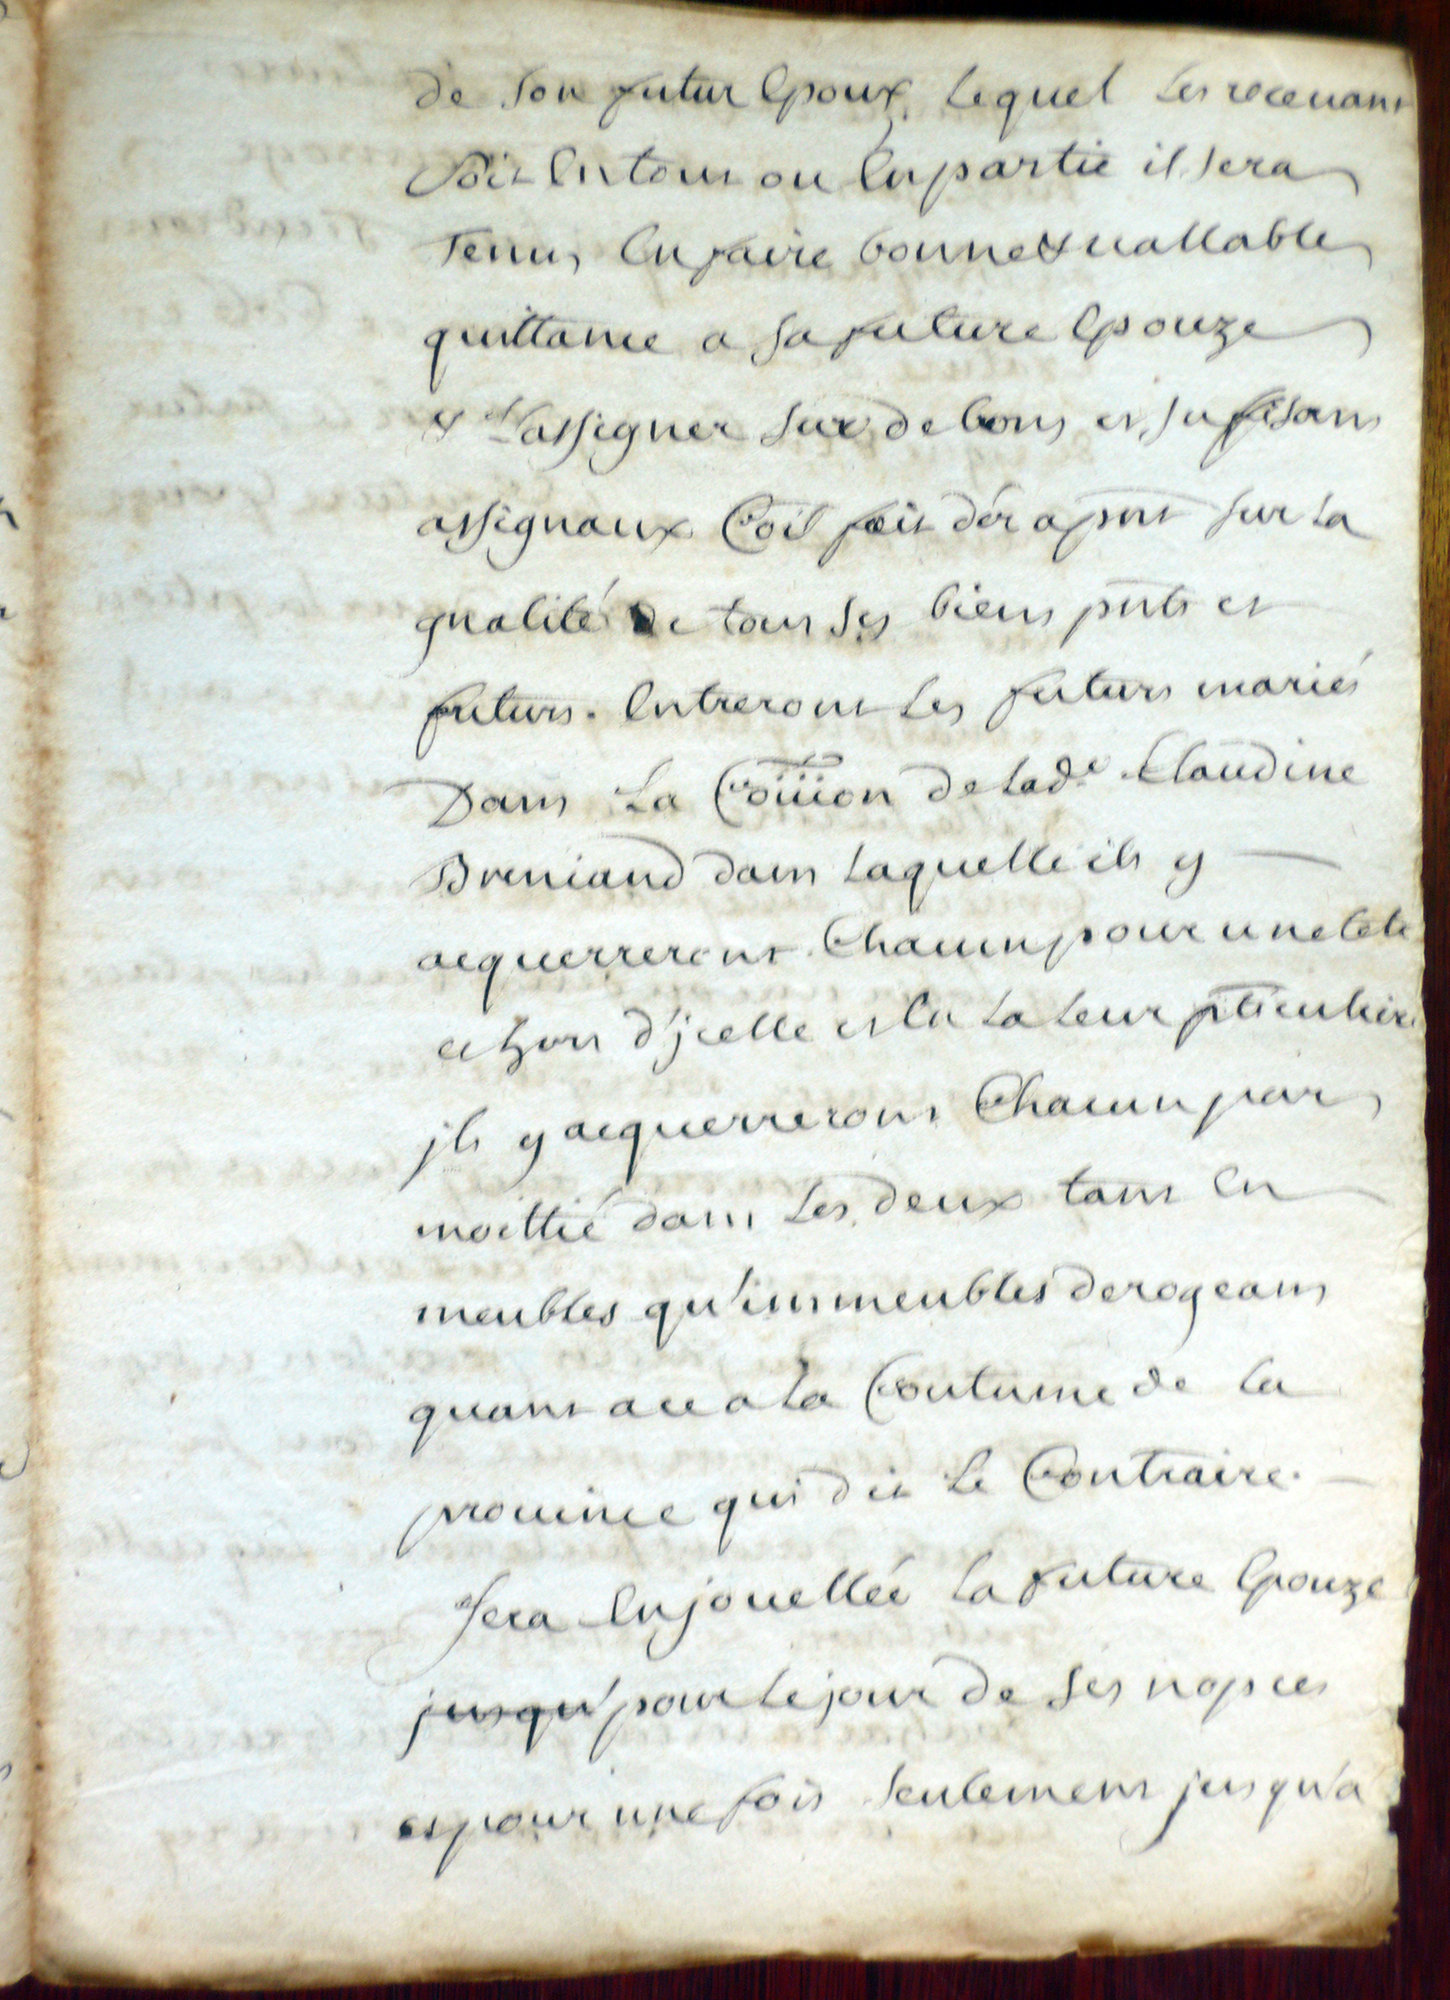 de son futur Epoux, lequel les recevant
soit En tout ou En partie il sera
tenu, En faire bonne & vallable
quittance a sa future Epouze
& L'assigner sur de bons et sufisans
assignaux Coe il fait des a pnt sur la
qualité de tous ses biens pnts et
futurs. Entreront Les futurs mariés
Dans La Coïïion de lad.e Claudine
Breniaud dans laquelle ils y
acquerreront Chacun pour une tete
et hors d'jcelle et En La Leur pticuliere
jls y acquerreront Chacun par
moittié dans Les deux tant En
meubles qu'immeubles derogeans
quant a ce a la Coutume de la
province qui dit le Contraire.
Sera Enjouellée La future Epouze
jusqu' pour le jour de ses nopces
et pour une fois seulement jusqu'a